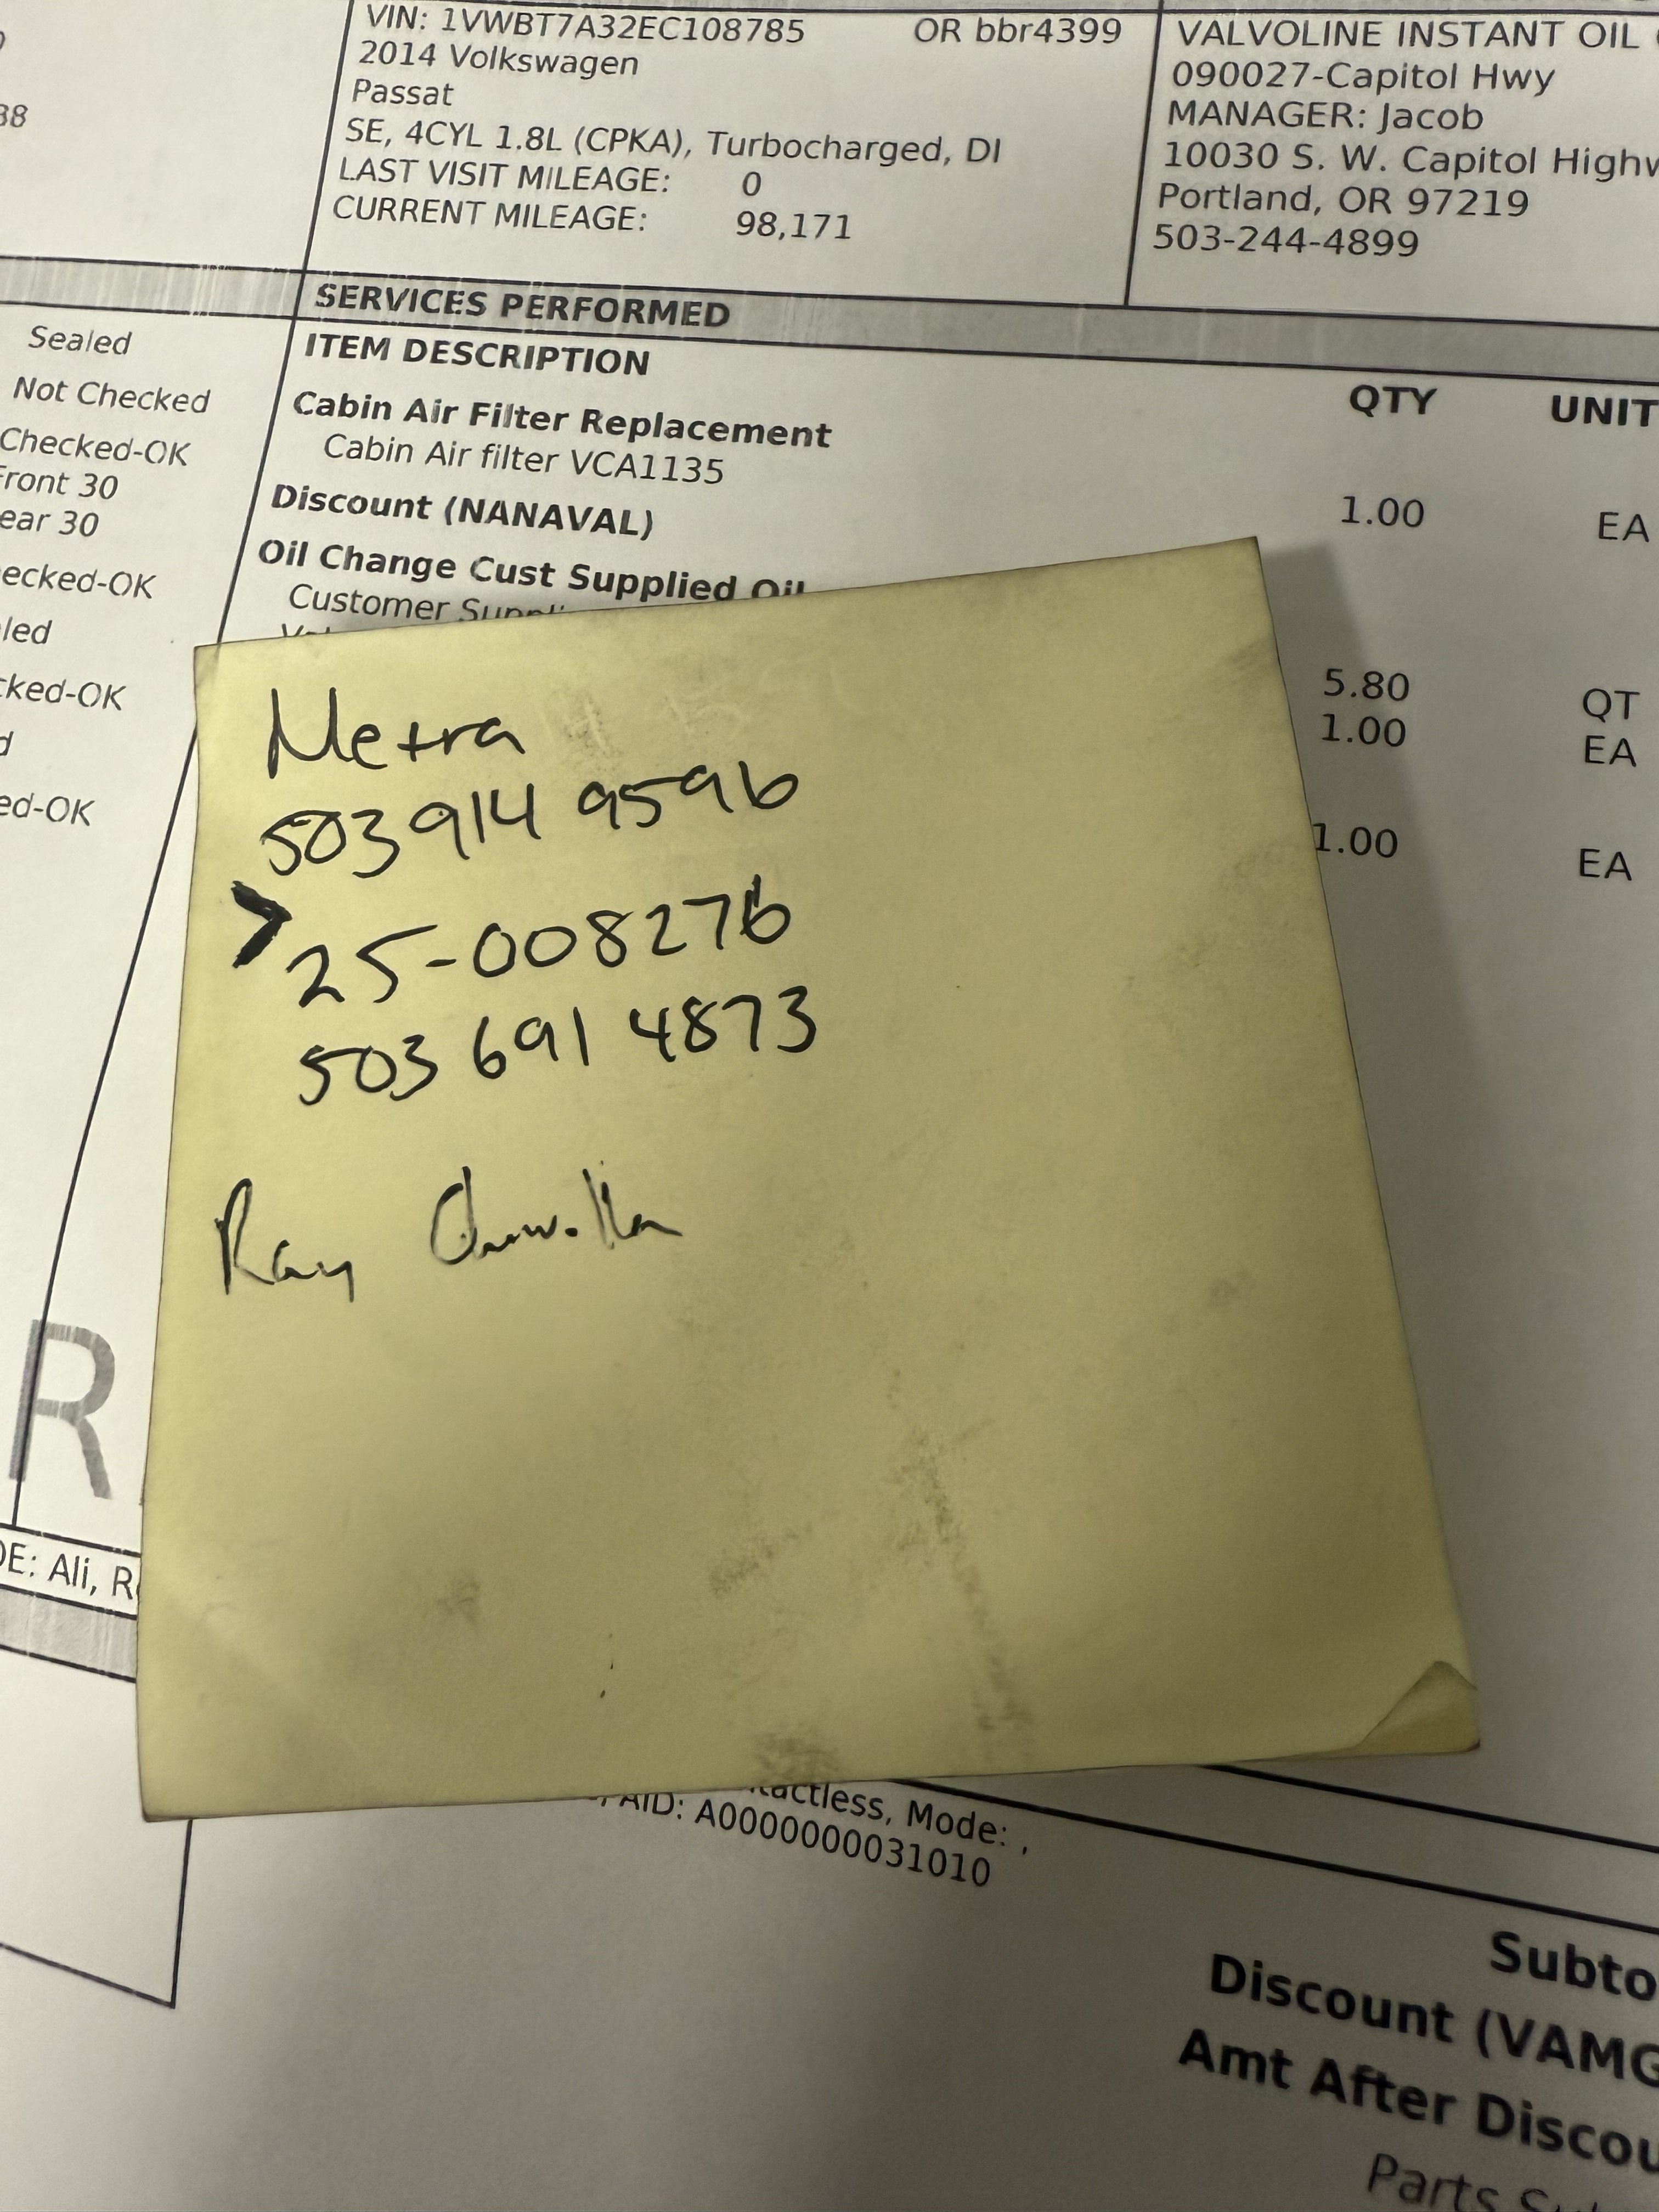 VIN: 1VWBT7A32EC108785 OR bbr4399
2014 Volkswagen
Passat
SE, 4CYL 1.8L (CPKA), Turbocharged, DI
LAST VISIT MILEAGE: 0
CURRENT MILEAGE: 98,171
VALVOLINE INSTANT OIL
090027-Capitol Hwy
MANAGER: Jacob
10030 S. W. Capitol Highw
Portland, OR 97219
503-244-4899
38
Sealed
Not Checked
Checked-OK
Front 30
ear 30
ecked-OK
led
cked-OK
d
ed-OK
SERVICES PERFORMED
ITEM DESCRIPTION QTY UNIT
Cabin Air Filter Replacement
Cabin Air filter VCA1135 1.00 EA
Discount (NANAVAL)
Oil Change Cust Supplied Oil
Customer Suppli
5.80 QT
1.00 EA
1.00 EA
Metra
503 914 9596
> 25-008276
503 691 4873
Ray
R
DE: Ali, R
tactless, Mode: ,
AID: A0000000031010
Subto
Discount (VAMG
Amt After Discou
Parts Su